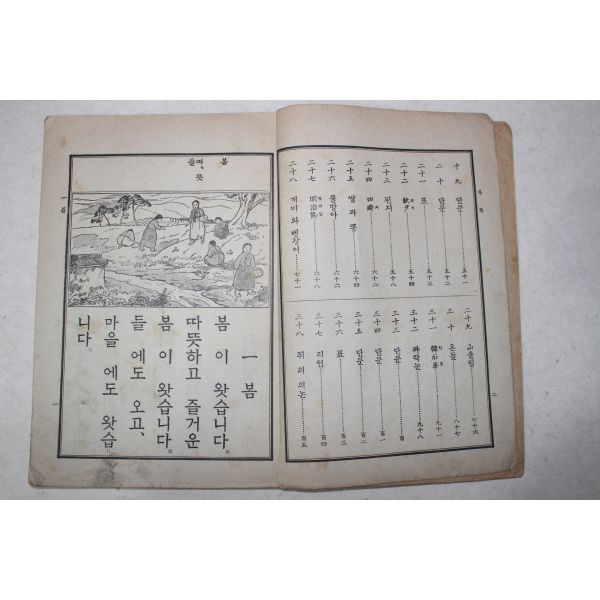 十九 단문 五十一
二十 단문 五十二
二十一 표 五十三
二十二 秋夕 五十四
二十三 편지 五十八
二十四 四時 六十二
二十五 쌀과 콩 六十四
二十六 물방아 六十六
二十七 明治節 六十八
二十八 개미와 벳장이 七十一
二十九 山울림 七十六
三十 온돌 八十七
三十一 九十一
三十二 九十八
三十三 단문 百
三十四 단문 百一
三十五 단문 百二
三十六 표 百三
三十七 리언 百四
三十八 쥐의 의논 百五
二
봄
따, 뜻
즐
一 봄
一 봄
봄이 왓습니다。
따뜻하고 즐거운
봄이 왓습니다。
들에도 오고、
마을에도 왓습
니다。